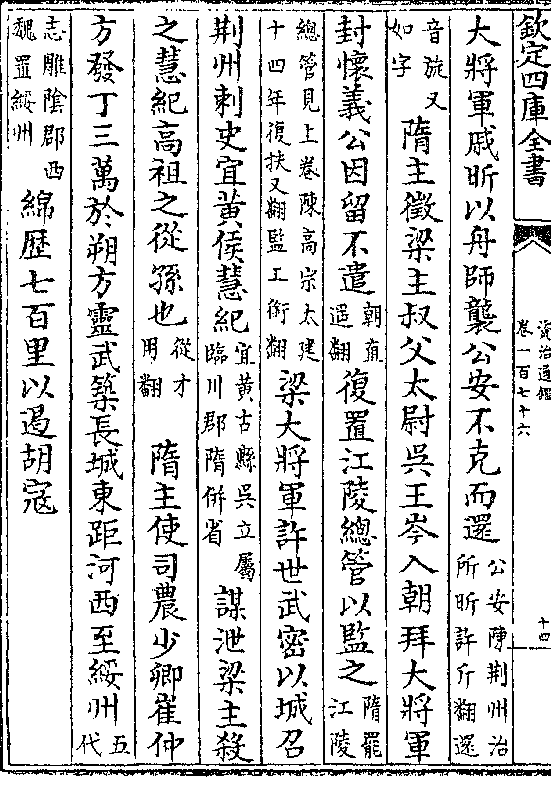 欽定四庫全書
資治通鑑
卷一百七十六
十四
大將軍戚昕以舟師襲公安不克而還公安陳荆州治所昕許斤翻還
音旋又如字 隋主徵梁主叔父太尉吳王岑入朝拜大將軍
封懷義公因留不遣朝直遥翻復置江陵總管以監之隋罷江陵
總管見上卷陳高宗太建十四年復扶又翻監工銜翻 梁大將軍許世武密以城召
荆州刺史宜黄侯慧紀宜黄古縣吳立屬臨川郡隋併省謀泄梁主殺
之慧紀高祖之從孫也從才用翻 隋主使司農少卿崔仲
方發丁三萬於朔方靈武築長城東距河西至綏州五代
志雕陰郡西魏置綏州 綿歴七百里以遏胡寇